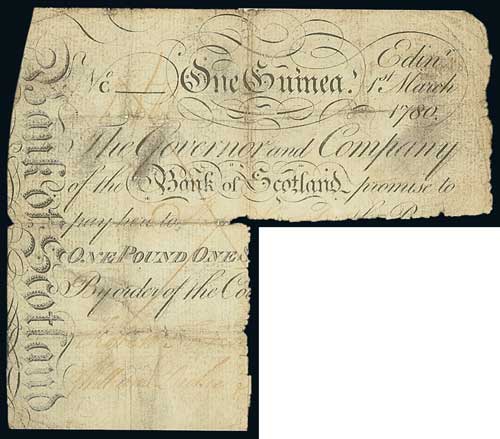 Bank of Scotland
No One Guinea.
Edinr.
1st March
1780.
The Governor and Company
of the Bank of Scotland promise to
pay here to
ONE POUND ONE
By order of the Co